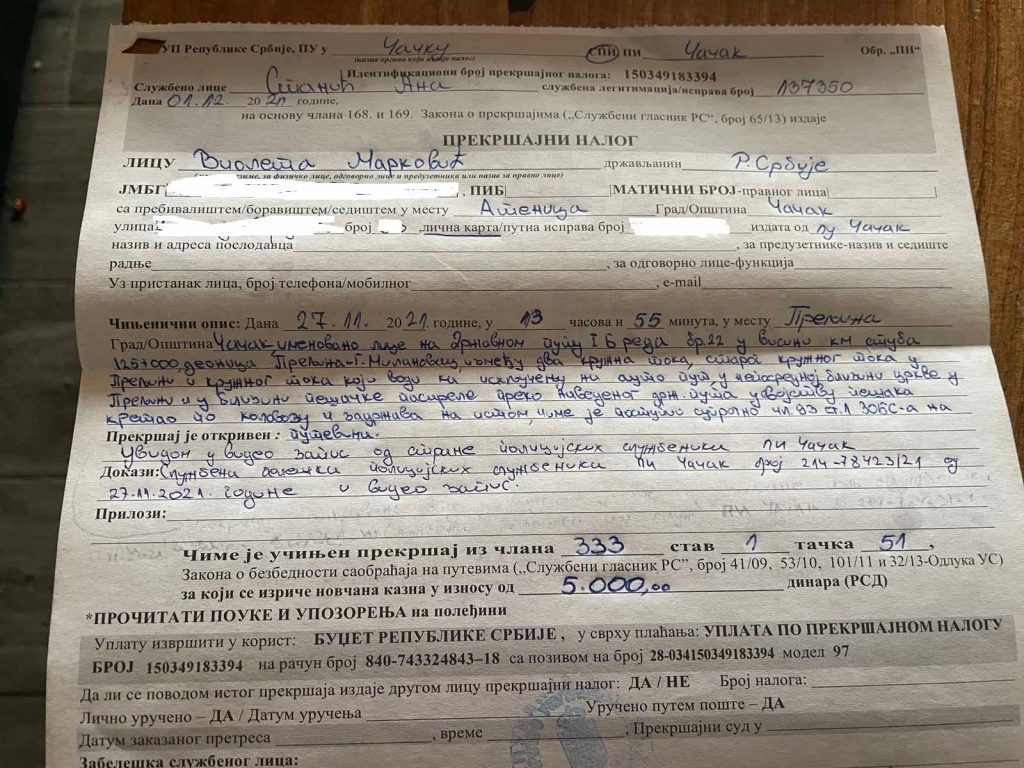 УП Републике Србије, ПУ у Чачку СПИ ПИ Чачак Обр. „ПН“
(назив органа који издаје налог)
Идентификациони број прекршајног налога: 150349183394
Службено лице Станић Ана службена легитимација/исправа број 137350
Дана 01.12 2021 године,
на основу члана 168. и 169. Закона о прекршајима („Службени гласник РС“, број 65/13) издаје
ПРЕКРШАЈНИ НАЛОГ
ЛИЦУ Виолета Марковић држављанин Р.Србије
зиме, за физичко лице, одговорно лице и предузетника или назив за правно лице)
ЈМБГ , ПИБ МАТИЧНИ БРОЈ-правног лица
са пребивалиштем/боравиштем/седиштем у месту Атеница Град/Општина Чачак
улица број ,лична карта/путна исправа број издата од ПУ Чачак
назив и адреса послодавца , за предузетнике-назив и седиште
радње , за одговорно лице-функција
Уз пристанак лица, број телефона/мобилног , e-mail
Чињенични опис: Дана 27.11. 2021. године, у 13 часова и 55 минута, у месту Прељина
Град/Општина Чачак именовано лице на државном путу I Б реда бр.22 у висини км стуба
125+000, деоница Прељина-Г.Милановац, између два кружна тока, старог кружног тока у
Прељини и кружног тока који води ка искључењу на ауто пут, у непосредној близини цркве у
Прељини и у близини пешачке пасареле преко наведеног држ. пута, у својству пешака
кретао по коловозу и задржава на истом, чиме је поступио супротно чл.93 ст.1 ЗОБС-а на
Прекршај је откривен : путевима.
Увидом у видео запис од стране полицијских службеника ПИ Чачак
Докази: Службена белешка полицијских службеника ПИ Чачак број 214-78423/21 од
27.11.2021. године и видео запис.
Прилози:
Чиме је учињен прекршај из члана 333 став 1 тачка 51 ,
Закона о безбедности саобраћаја на путевима („Службени гласник РС“, број 41/09, 53/10, 101/11 и 32/13-Одлука УС)
за који се изриче новчана казна у износу од 5.000,00 динара (РСД)
*ПРОЧИТАТИ ПОУКЕ И УПОЗОРЕЊА на полеђини
Уплату извршити у корист: БУЏЕТ РЕПУБЛИКЕ СРБИЈЕ , у сврху плаћања: УПЛАТА ПО ПРЕКРШАЈНОМ НАЛОГУ
БРОЈ 150349183394 на рачун број 840-743324843–18 са позивом на број 28-034150349183394 модел 97
Да ли се поводом истог прекршаја издаје другом лицу прекршајни налог: ДА / НЕ Број налога:
Лично уручено – ДА / Датум уручења Уручено путем поште – ДА
Датум заказаног претреса , време . Прекршајни суд у
Забелешка службеног лица: